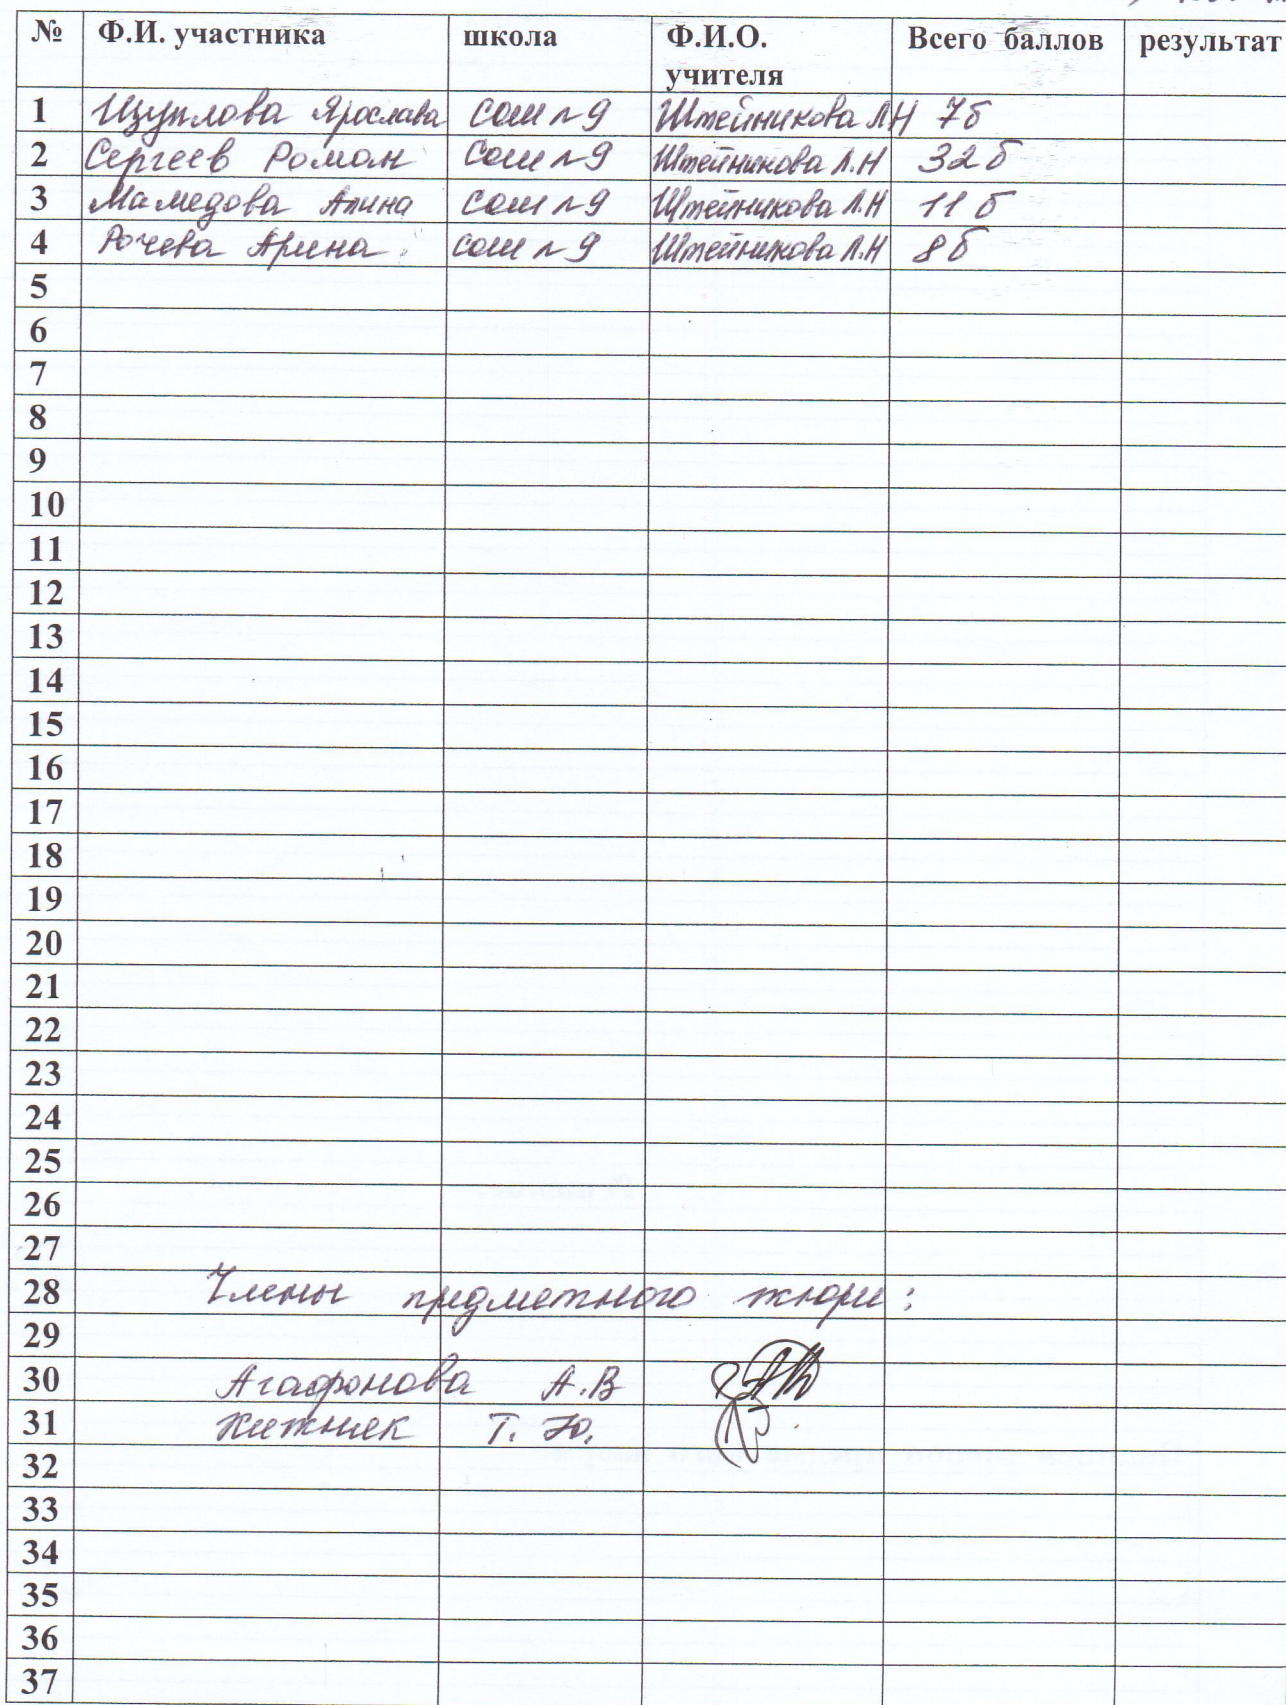 № Ф.И. участника школа Ф.И.О. учителя Всего баллов результат
1 Щуплова Ярослава сош n 9 Штейникова Л.Н 7б
2 Сергеев Роман сош n 9 Штейникова Л.Н 32б
3 Мамедова Алина сош n 9 Штейникова Л.Н 11б
4 Рочева Арина сош n 9 Штейникова Л.Н 8б
5
6
7
8
9
10
11
12
13
14
15
16
17
18
19
20
21
22
23
24
25
26
27
28 Члены предметного жюри:
29
30 Агафонова А.В
31 Хижняк Т.Ю.
32
33
34
35
36
37